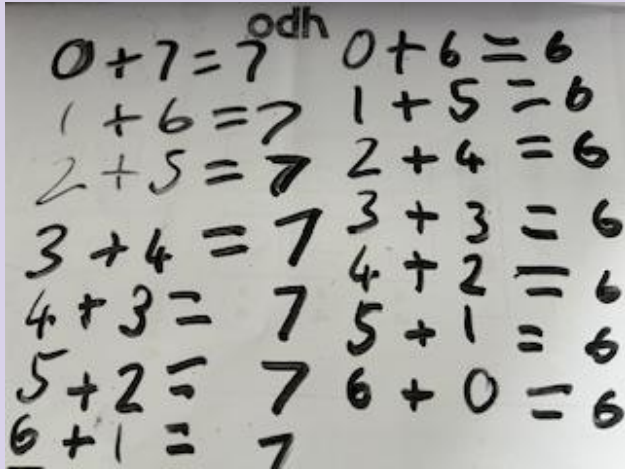 odh
0+7=7
1+6=7
2+5=7
3+4=7
4+3=7
5+2=7
6+1=7
0+6=6
1+5=6
2+4=6
3+3=6
4+2=6
5+1=6
6+0=6